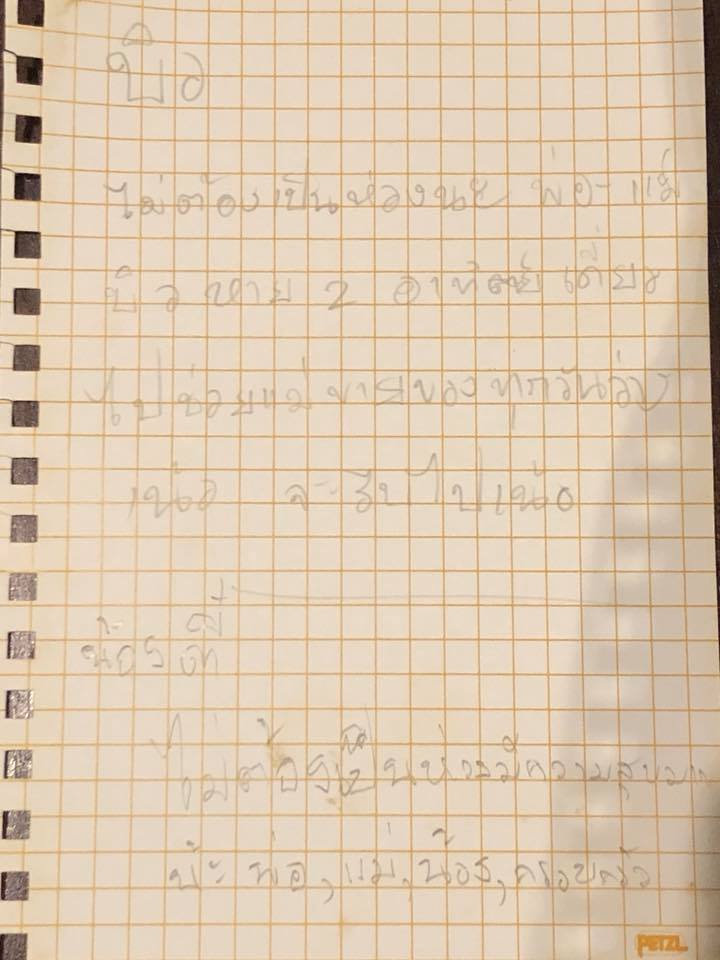 บิว
ไม่ต้องเป็นห่วงนะ พ่อ-แม่
บิว หาย 2 อาทิตย์ เดี๋ยว
ไปช่วยแม่ขายของทุกวันจ่ะ
เน้อ จะรีบไปเน้อ
น้องตี๋
ไม่ต้องเป็นห่วงมีความสุขมาก
พ่อ, แม่, น้อง, ครอบครัว
PETZL